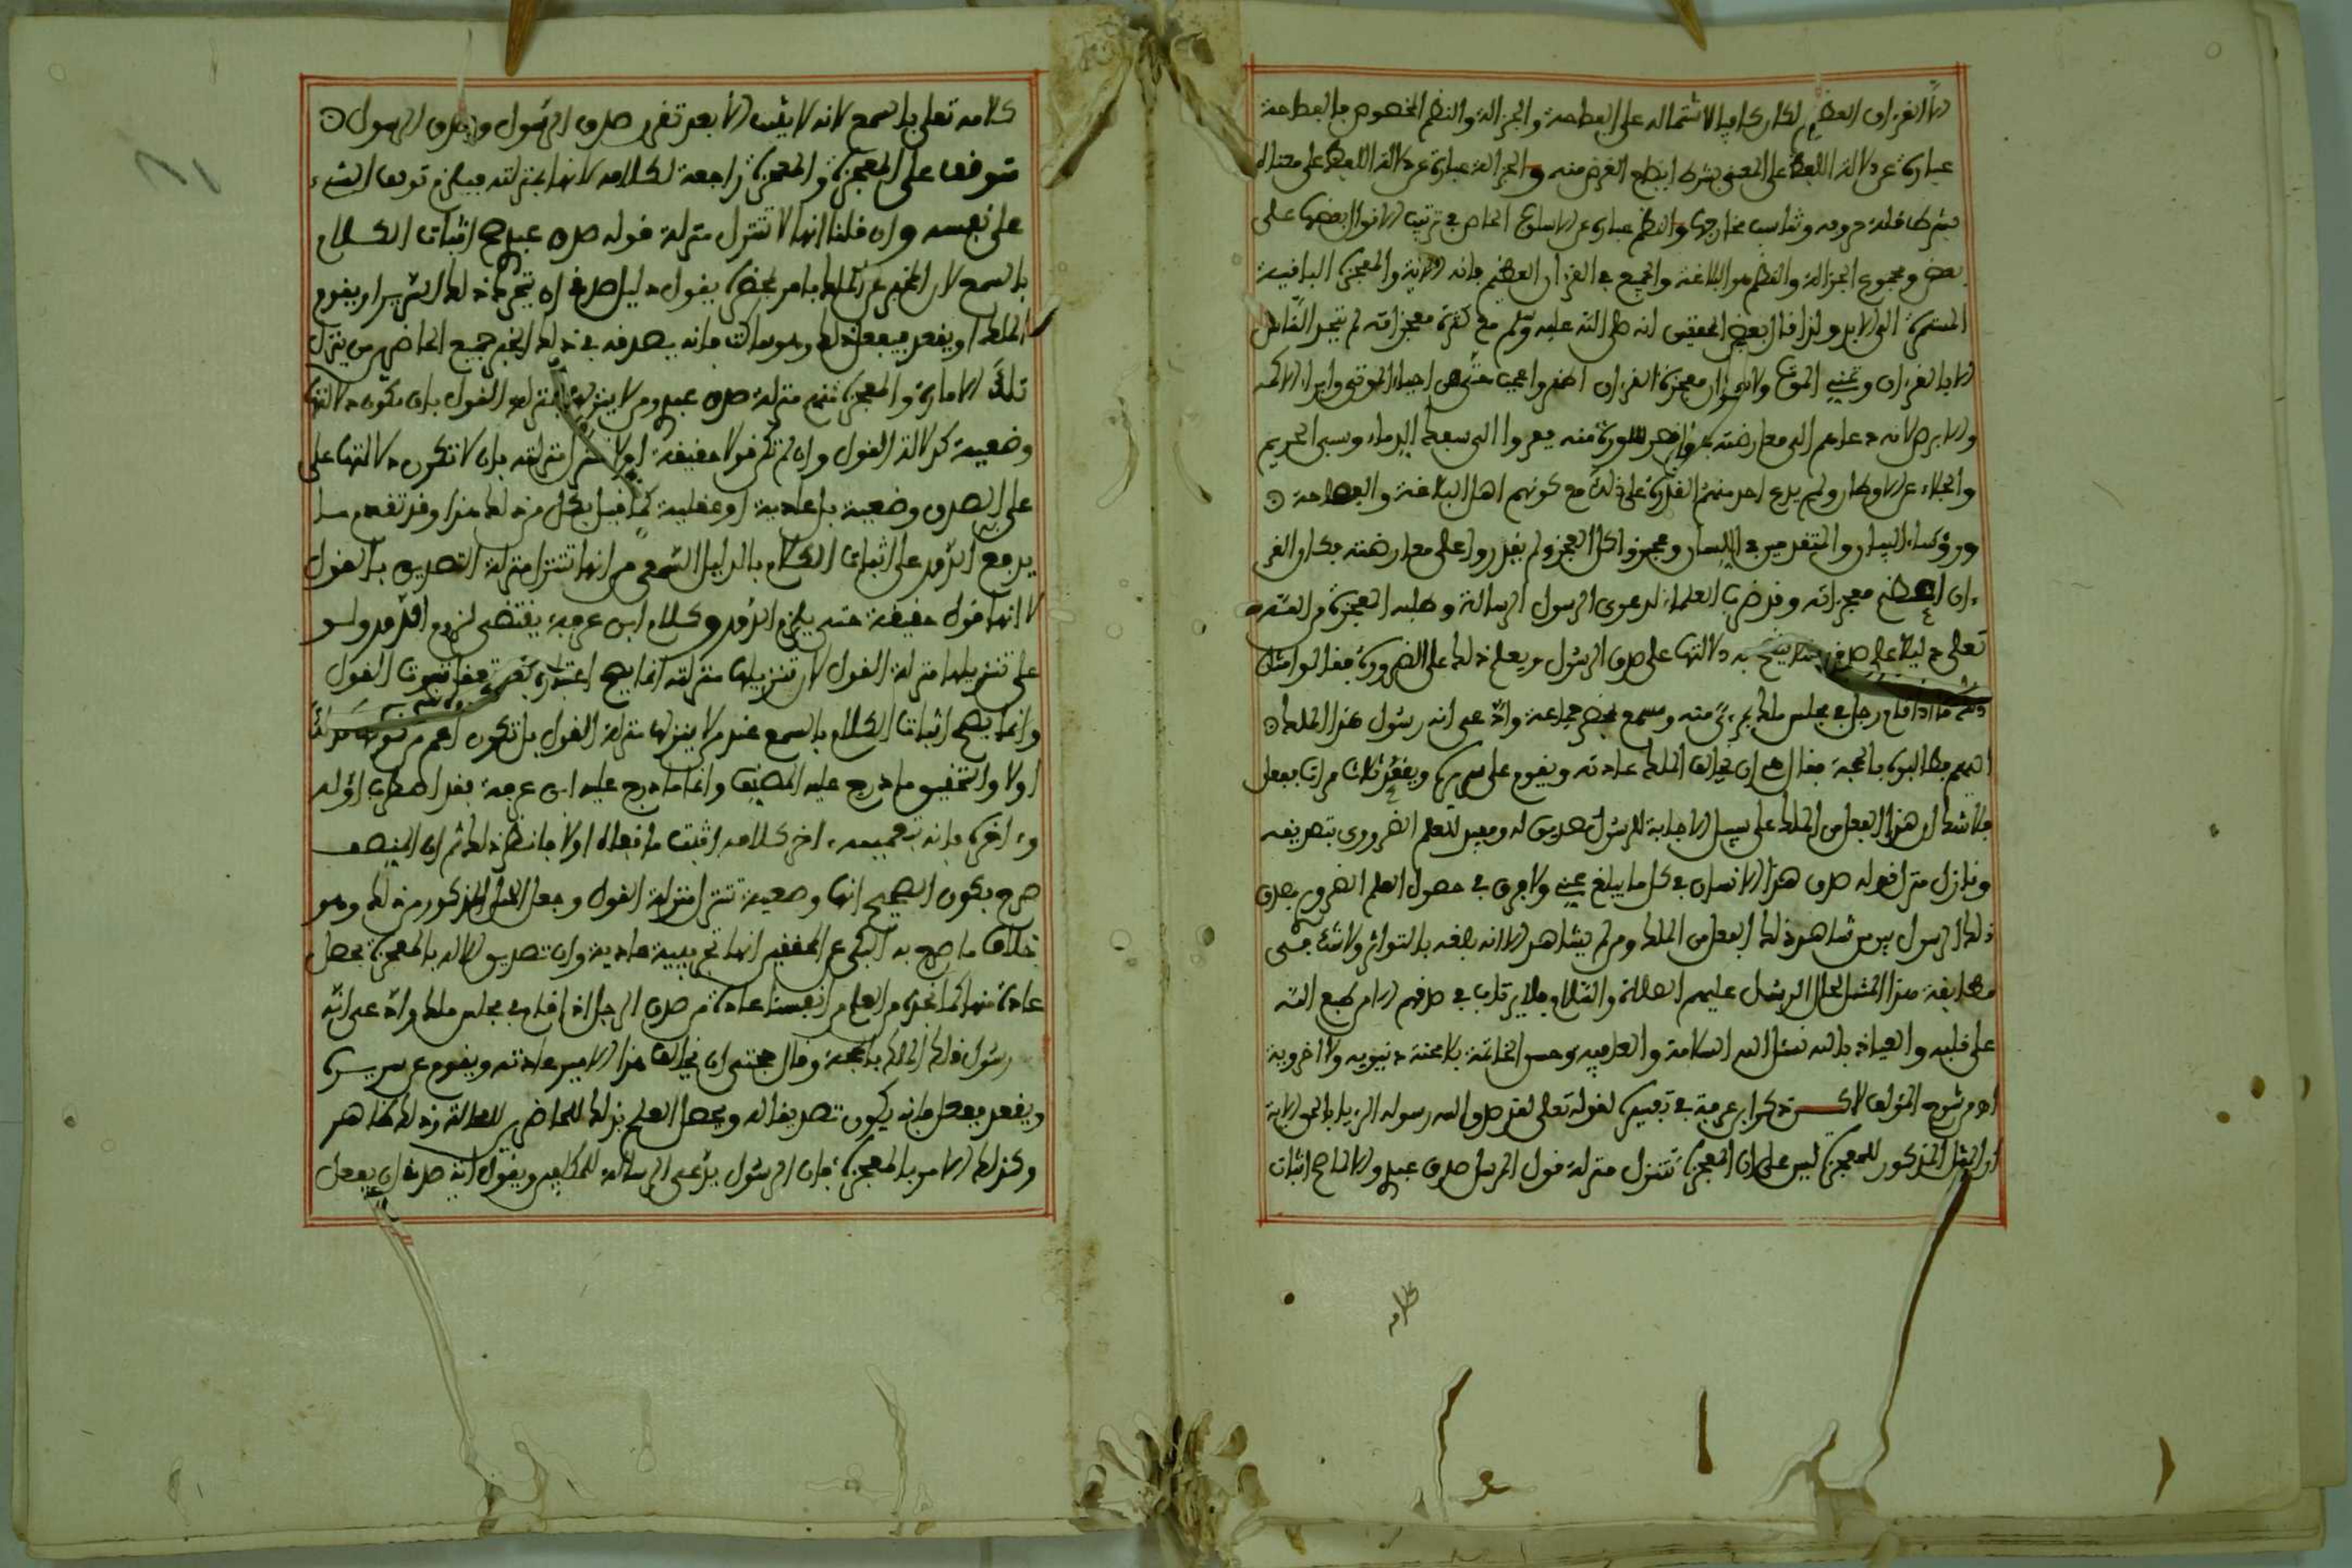 الا القرءان العظيم لكان كافيا لاشتماله على الفصاحة والجزالة والنظم المخصوص فالفصاحة
عبارة عن دلالة اللفظ على المعنى بشرط ايضاح الغرض منه والجزالة عبارة عن دلالة اللفظ على معناه
بشرط قلة حروفه وتناسب مخارجها والنظم عبارة عن الاسلوب الخاص في ترتيب الاقوال بعضها على
بعض ومجموع الجزالة والنظم هو البلاغة والجميع في القرءان العظيم فانه الاية والمعجزة الباقية
المستمرة الى الابد ولذا قال بعض المحققين انه صلى الله عليه وسلم مع كثرة معجزاته لم يتحد الناس
الا بالقرءان معجزة القرءان اظهر واعجب من احياء الموتى وابراء الاكمه
والابرص لانه دعاهم الى معارضته سورة منه فعدلوا الى سفك الدماء وسبي الحريم
والجلاء عن الاوطان ولم يدع احد منهم القدرة على ذلك مع كونهم اهل البلاغة والفصاحة
ورؤساء البيان والمتقدمين في اللسان وعجزوا كل العجز ولم يقدروا على معارضته فكان القر
ءان اعظم معجزاته وقد ضرب العلماء لدعوى الرسول الرسالة وطلبه المعجزة من الله
تعلى دليلا على صدقه يتضح به دلالتها على صدق الرسول ويعلم ذلك على الضرورة فقالوا مثال
ذلك ما اذا قام رجل في مجلس ملك بمرءى منه ومسمع بحضرة جماعة وادعى انه رسول هذا الملك
اليهم فطالبوه بالحجة فقال هي ان يخالف الملك عادته ويقوم على سريره ويقعد ثلاث مرات ففعل
فلا شك ان هذا الفعل من الملك على سبيل الاجابة للرسول تصديق له ومفيد للعلم الضروري بتصديقه
ونازل منزلة قوله صدق هذا الانسان في كل ما يبلغ عني ولا فرق في حصول العلم الضروري بصدق
ذلك الرسول بين من شاهد ذلك الفعل من الملك ومن لم يشاهد الا انه بلغه بالتواتر ولا شك في
مطابقة هذا المثال لحال الرسل عليهم الصلاة والسلام فلا يرتاب في صدقهم الا من طبع الله
على قلبه والعياذ بالله نسئل الله السلامة والعافية وحسن الخاتمة بلا محنة دنيوية ولا اخروية
اه من شرح المؤلف ذكر ابن عرفة في تفسيره لقوله تعلى لقد صدق الله رسوله الرءيا بالحق الاية
ان المثل المذكور للمعجزة ليس على ان المعجزة تتنزل منزلة قول المرسل صدق عبدي والا لما صح اثبات
كلامه
كلامه تعلى بالسمع لانه لا يثبت الا بعد تقرر صدق الرسول وصدق الرسول
متوقف على المعجزة والمعجزة راجعة لكلامه لانها بمنزلته فيلزم توقف الشيء
على نفسه وان قلنا انها لا تتنزل منزلة قوله صدق عبدي صح اثبات الكلام
بالسمع لان المخبر عن الملك بامر بحضرته يقول دليل صدقي ان يتحرك ذلك السرير او يقوم
الملك او يقعد فيفعل ذلك وهو ساكت فانه يصدقه في ذلك الخبر جميع الحاضرين من ينزل
تلك الامارة والمعجزة منهم منزلة صدق عبدي ومن لا ينزلها بمنزلة القول بان تكون دلالتها
وضعية كدلالة القول وان لم تكن قولا حقيقة اولا بمنزلته بان لا تكون دلالتها على
على الصدق وضعية بل عادية او عقلية كما قيل بكل من ذلك هذا وقد تقدم ما
يدفع الدور على اثبات الكلام بالدليل السمعي من انها تتنزل منزلة التصديق بالقول
لا انها قول حقيقة حتى يلزم الدور وكلام ابن عرفة يقتضي لزوم الدور ولو
على تنزيلها منزلة القول لان تنزيلها منزلته انما يصح ثبوت القول
وانما يصح اثبات الكلام بالسمع عند من لا ينزلها منزلة القول بل تكون اعم من
اولا والتحقيق ما درج عليه المصنف واما ما درج عليه ابن عرفة فقد اضطرب اوله
وءاخره فانه ءاخر كلامه اثبت ما نفاه اولا فانظر ذلك ثم ان المنصف
صرح بكون الصحيح انها وضعية تتنزل منزلة القول وجعل المثل المذكور من ذلك وهو
خلاف ما صرح به عن المحققين انها تجريبية عادية وان تصديق الاله بالمعجزة يحصل
عادة منها كما نجد من العلم من انفسنا عادة من صدق الرجل اذا قام في مجلس ملك وادعى انه
رسول ذلك الملك بالحجة وقال حجتي ان يخالف هذا الامير عادته ويقوم عن سريره
ويقعد ففعل فانه يكون تصديقا له ويحصل العلم بذلك للحاضرين لا محالة وذلك ظاهر
وكذلك الامر بالمعجزة فان الرسول يدعى الرسالة للمكلفين ويقول اية صدقي ان يفعل